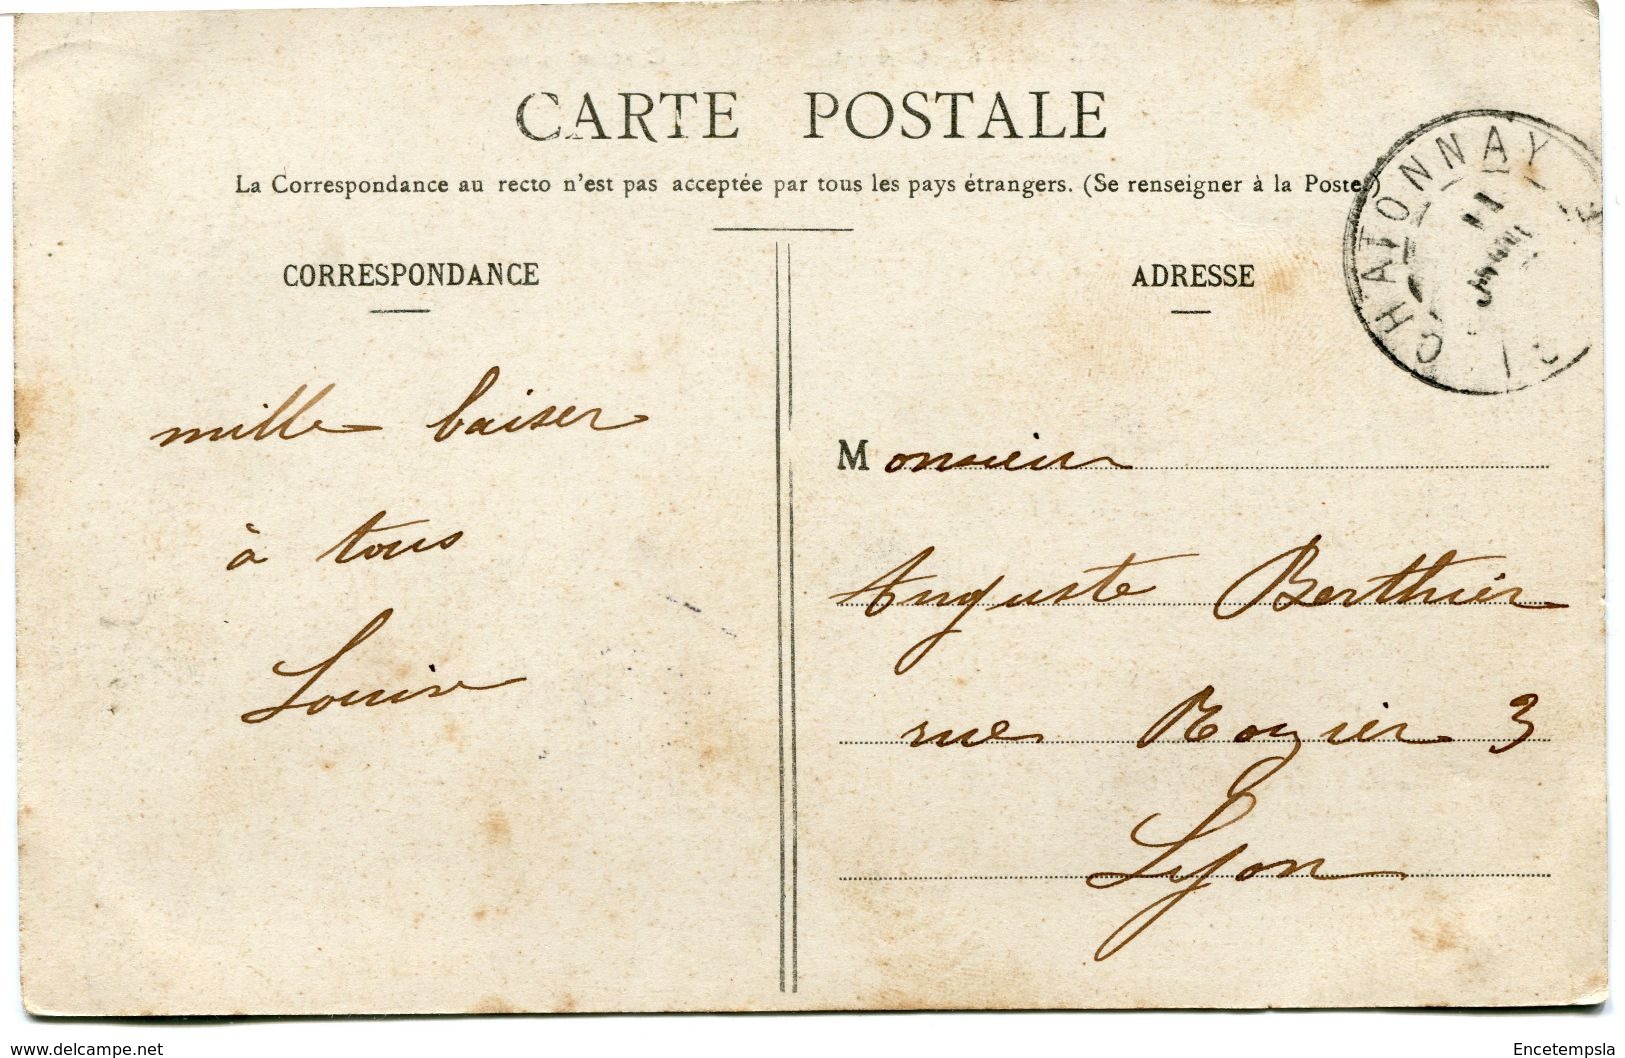 CARTE POSTALE
La Correspondance au recto n'est pas acceptée par tous les pays étrangers. (Se renseigner à la Poste.)
CORRESPONDANCE
mille baiser
à tous
Louise
ADRESSE
Monsieur
Auguste Berthier
rue Rozier 3
Lyon
CHATONNAY
11
www.delcampe.net
Encetempsla